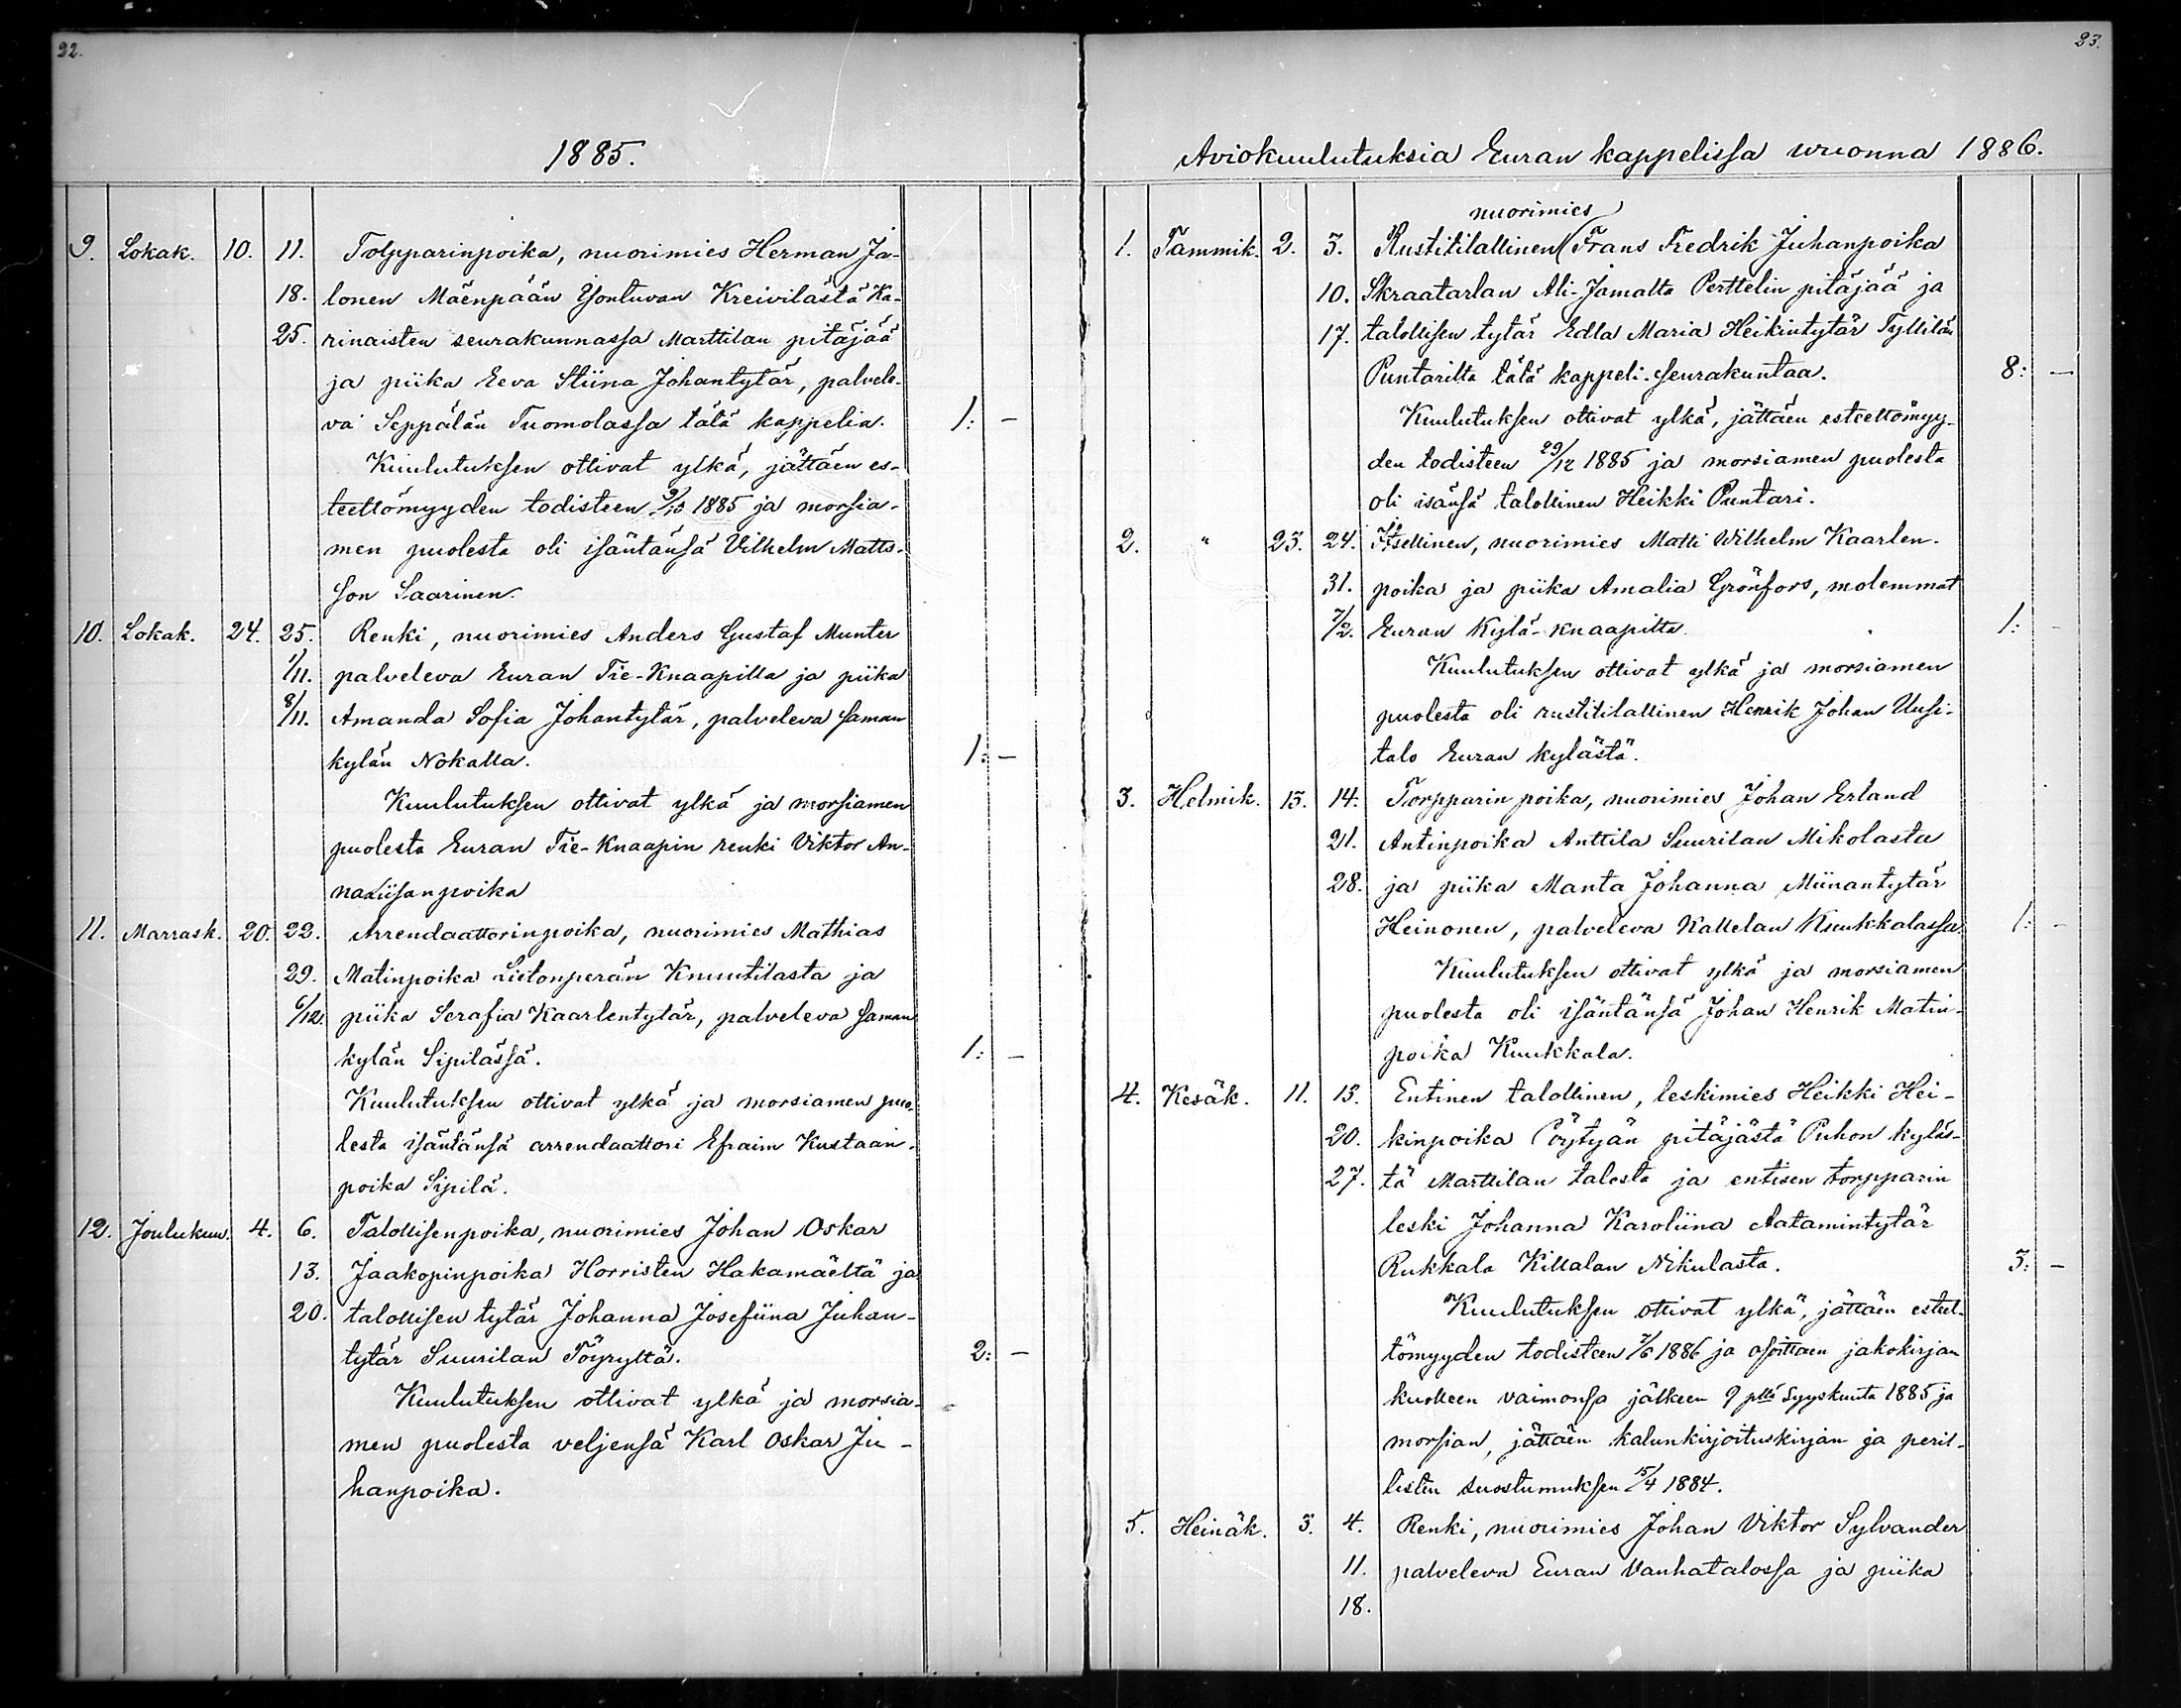 22.
1885.
9. Lokak. 10. 11. Tolpparinpoika, nuorimies Herman Ja-
18. lonen Mäenpään Yontuvan Kreivilästä Ka-
25. rinaisten seurakunnassa Marttilan pitäjää
ja piika Eeva Stiina Johantytär, palvele-
va Seppälän Tuomolassa tätä kappelia. 1: –
Kuulutuksen ottivat ylkä, jättäen es-
teettömyyden todisteen 9/10 1885 ja morsia-
men puolesta oli isäntänsä Vilhelm Matts-
son Saarinen.
10. Lokak. 24. 25. Renki, nuorimies Anders Gustaf Munter
1/11. palveleva Euran Tie-Knaapilla ja piika
8/11. Amanda Sofia Johantytär, palveleva saman
kylän Nokalla. 1: –
Kuulutuksen ottivat ylkä ja morsiamen
puolesta Euran Tie-Knaapin renki Viktor An-
naliisanpoika
11. Marrask. 20. 22. Arrendaattorinpoika, nuorimies Mathias
29. Matinpoika Lietonperän Knuutilasta ja
6/12. piika Serafia Kaarlentytär, palveleva saman
kylän Sipilässä. 1: –
Kuulutuksen ottivat ylkä ja morsiamen puo-
lesta isäntänsä arrendaattori Efraim Kustaan-
poika Sipilä.
12. Joulukuu. 4. 6. Talollisenpoika, nuorimies Johan Oskar
13. Jaakopinpoika Horristen Hakamäeltä ja
20. talollisen tytär Johanna Josefiina Juhan-
tytär Suurilan Töyryltä. 2: –
Kuulutuksen ottivat ylkä ja morsia-
men puolesta veljensä Karl Oskar Ju-
hanpoika.
23.
Aviokuulutuksia Euran kappelissa wuonna 1886.
nuorimies
1. Tammik. 2. 3. Rustitilallinen Frans Fredrik Juhanpoika
10. Skraatarlan Ali-Jamalta Perttelin pitäjää ja
17. talollisen tytär Edla Maria Heikintytär Tyllilän
Puntarilta tätä kappeli-seurakuntaa. 8: –
Kuulutuksen ottivat ylkä, jättäen esteettömyy-
den todisteen 29/12 1885 ja morsiamen puolesta
oli isänsä talollinen Heikki Puntari.
2. " 23. 24. Itsellinen, nuorimies Matti Wilhelm Kaarlen-
31. poika ja piika Amalia Grönfors, molemmat
7/2. Euran Kylä-Knaapilta. 1: –
Kuulutuksen ottivat ylkä ja morsiamen
puolesta oli rustitilallinen Henrik Johan Uusi-
talo Euran kylästä.
3. Helmik. 13. 14. Torpparin poika, nuorimies Johan Erland
21. Antinpoika Anttila Suurilan Mikolasta
28. ja piika Manta Johanna Miinantytär
Heinonen, palveleva Kallelan Kuukkalassa. 1: –
Kuulutuksen ottivat ylkä ja morsiamen
puolesta oli isäntänsä Johan Henrik Matin-
poika Kuukkala.
4. Kesäk. 11. 13. Entinen talollinen, leskimies Heikki Hei-
20. kinpoika Pöytyän pitäjästä Puhon kyläs-
27. tä Marttilan talosta ja entisen torpparin
leski Johanna Karoliina Aatamintytär
Rukkala Killalan Nikulasta. 3: –
Kuulutuksen ottivat ylkä, jättäen esteet-
tömyyden todisteen 7/6 1886 ja osoittaen jakokirjan
kuolleen vaimonsa jälkeen 9 pltä Syyskuuta 1885 ja
morsian, jättäen kalunkirjoituskirjan ja peril-
listen suostumuksen 15/4 1884.
5. Heinäk. 3. 4. Renki, nuorimies Johan Viktor Sylvander
11. palveleva Euran Vanhatalossa ja piika
18.